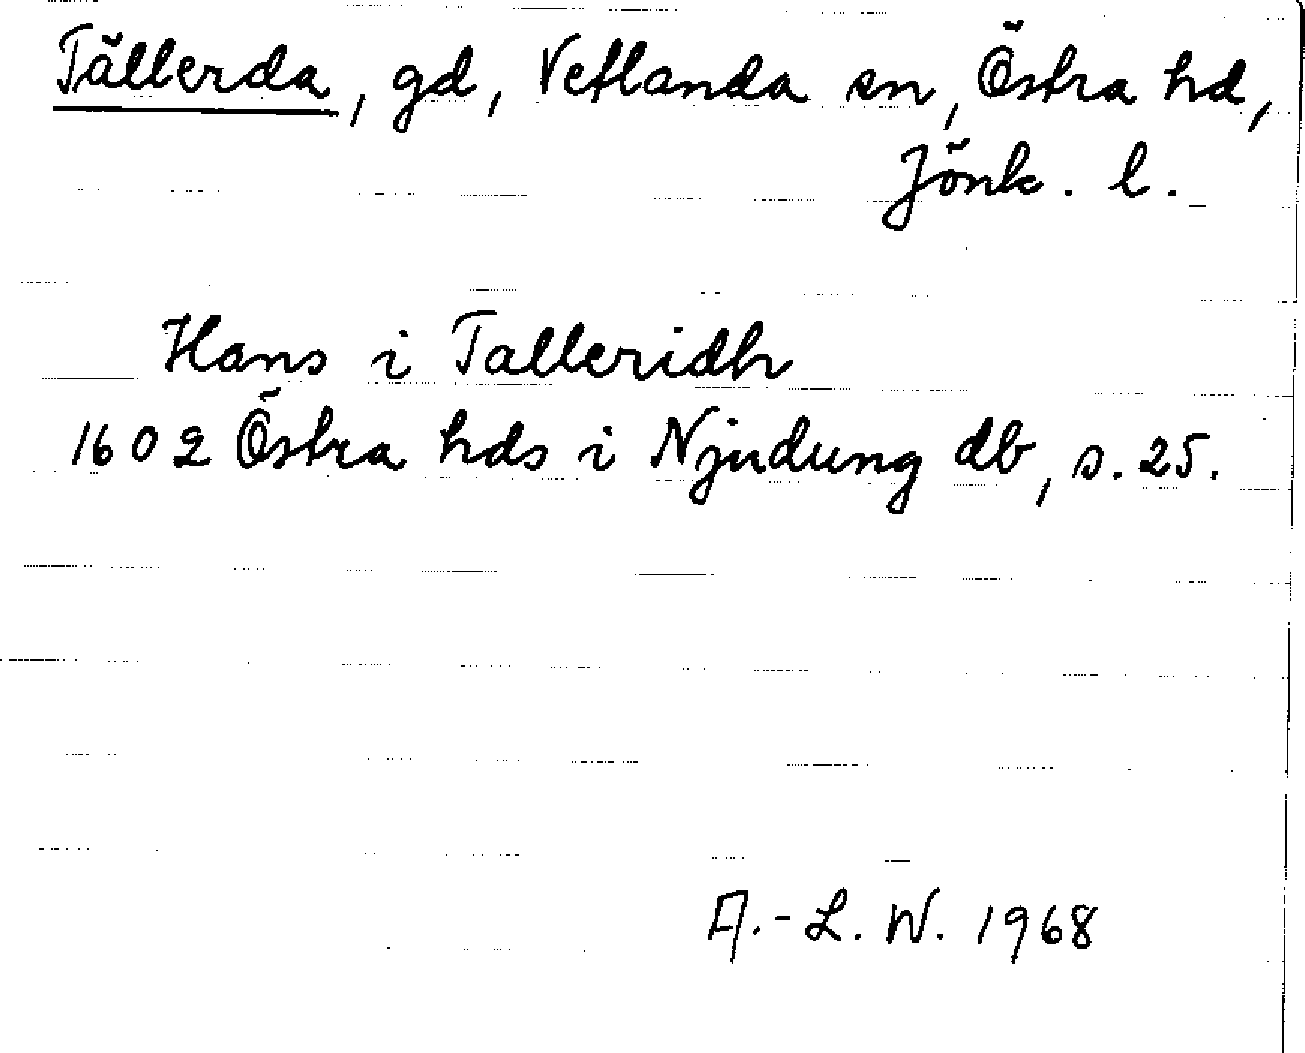 Tällerda, gd, Vetlanda sn, Östra hd,
Jönk. l.
Hans i Talleridh
1602 Östra hds i Njudung db, s. 25.
A.-L. W. 1968